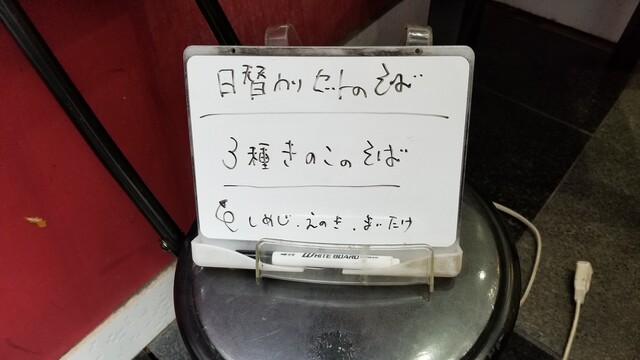 日替わりセットのそば
3種きのこのそば
しめじ・えのき・まいたけ
WHITE BOARD